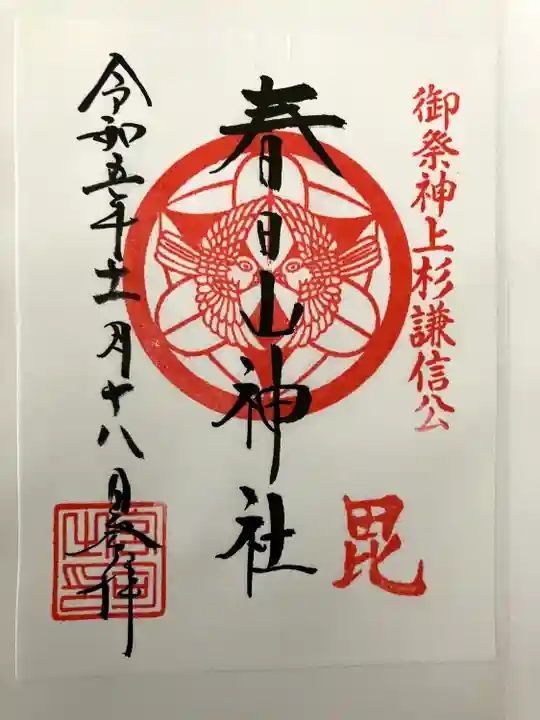 御祭神上杉謙信公
毘
春日山神社
令和五年十一月十八日参拝